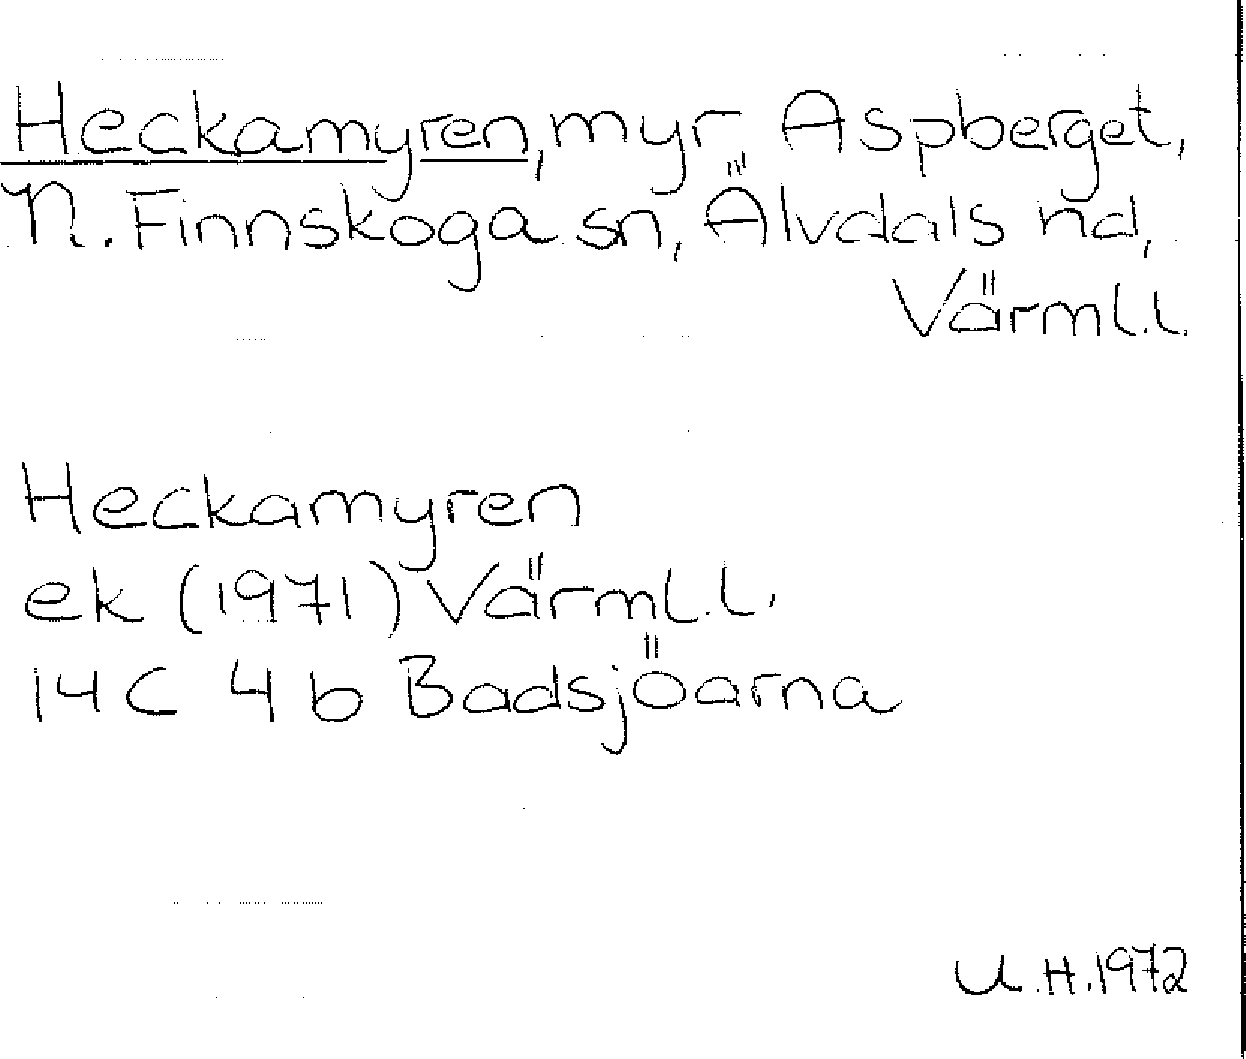 Heckamyren, myr Aspberget,
N. Finnskoga sn, Älvdals hd,
Värml.l.
Heckamyren
ek (1971) Värml.l.
14C 4b Badsjöarna
U.H.1972